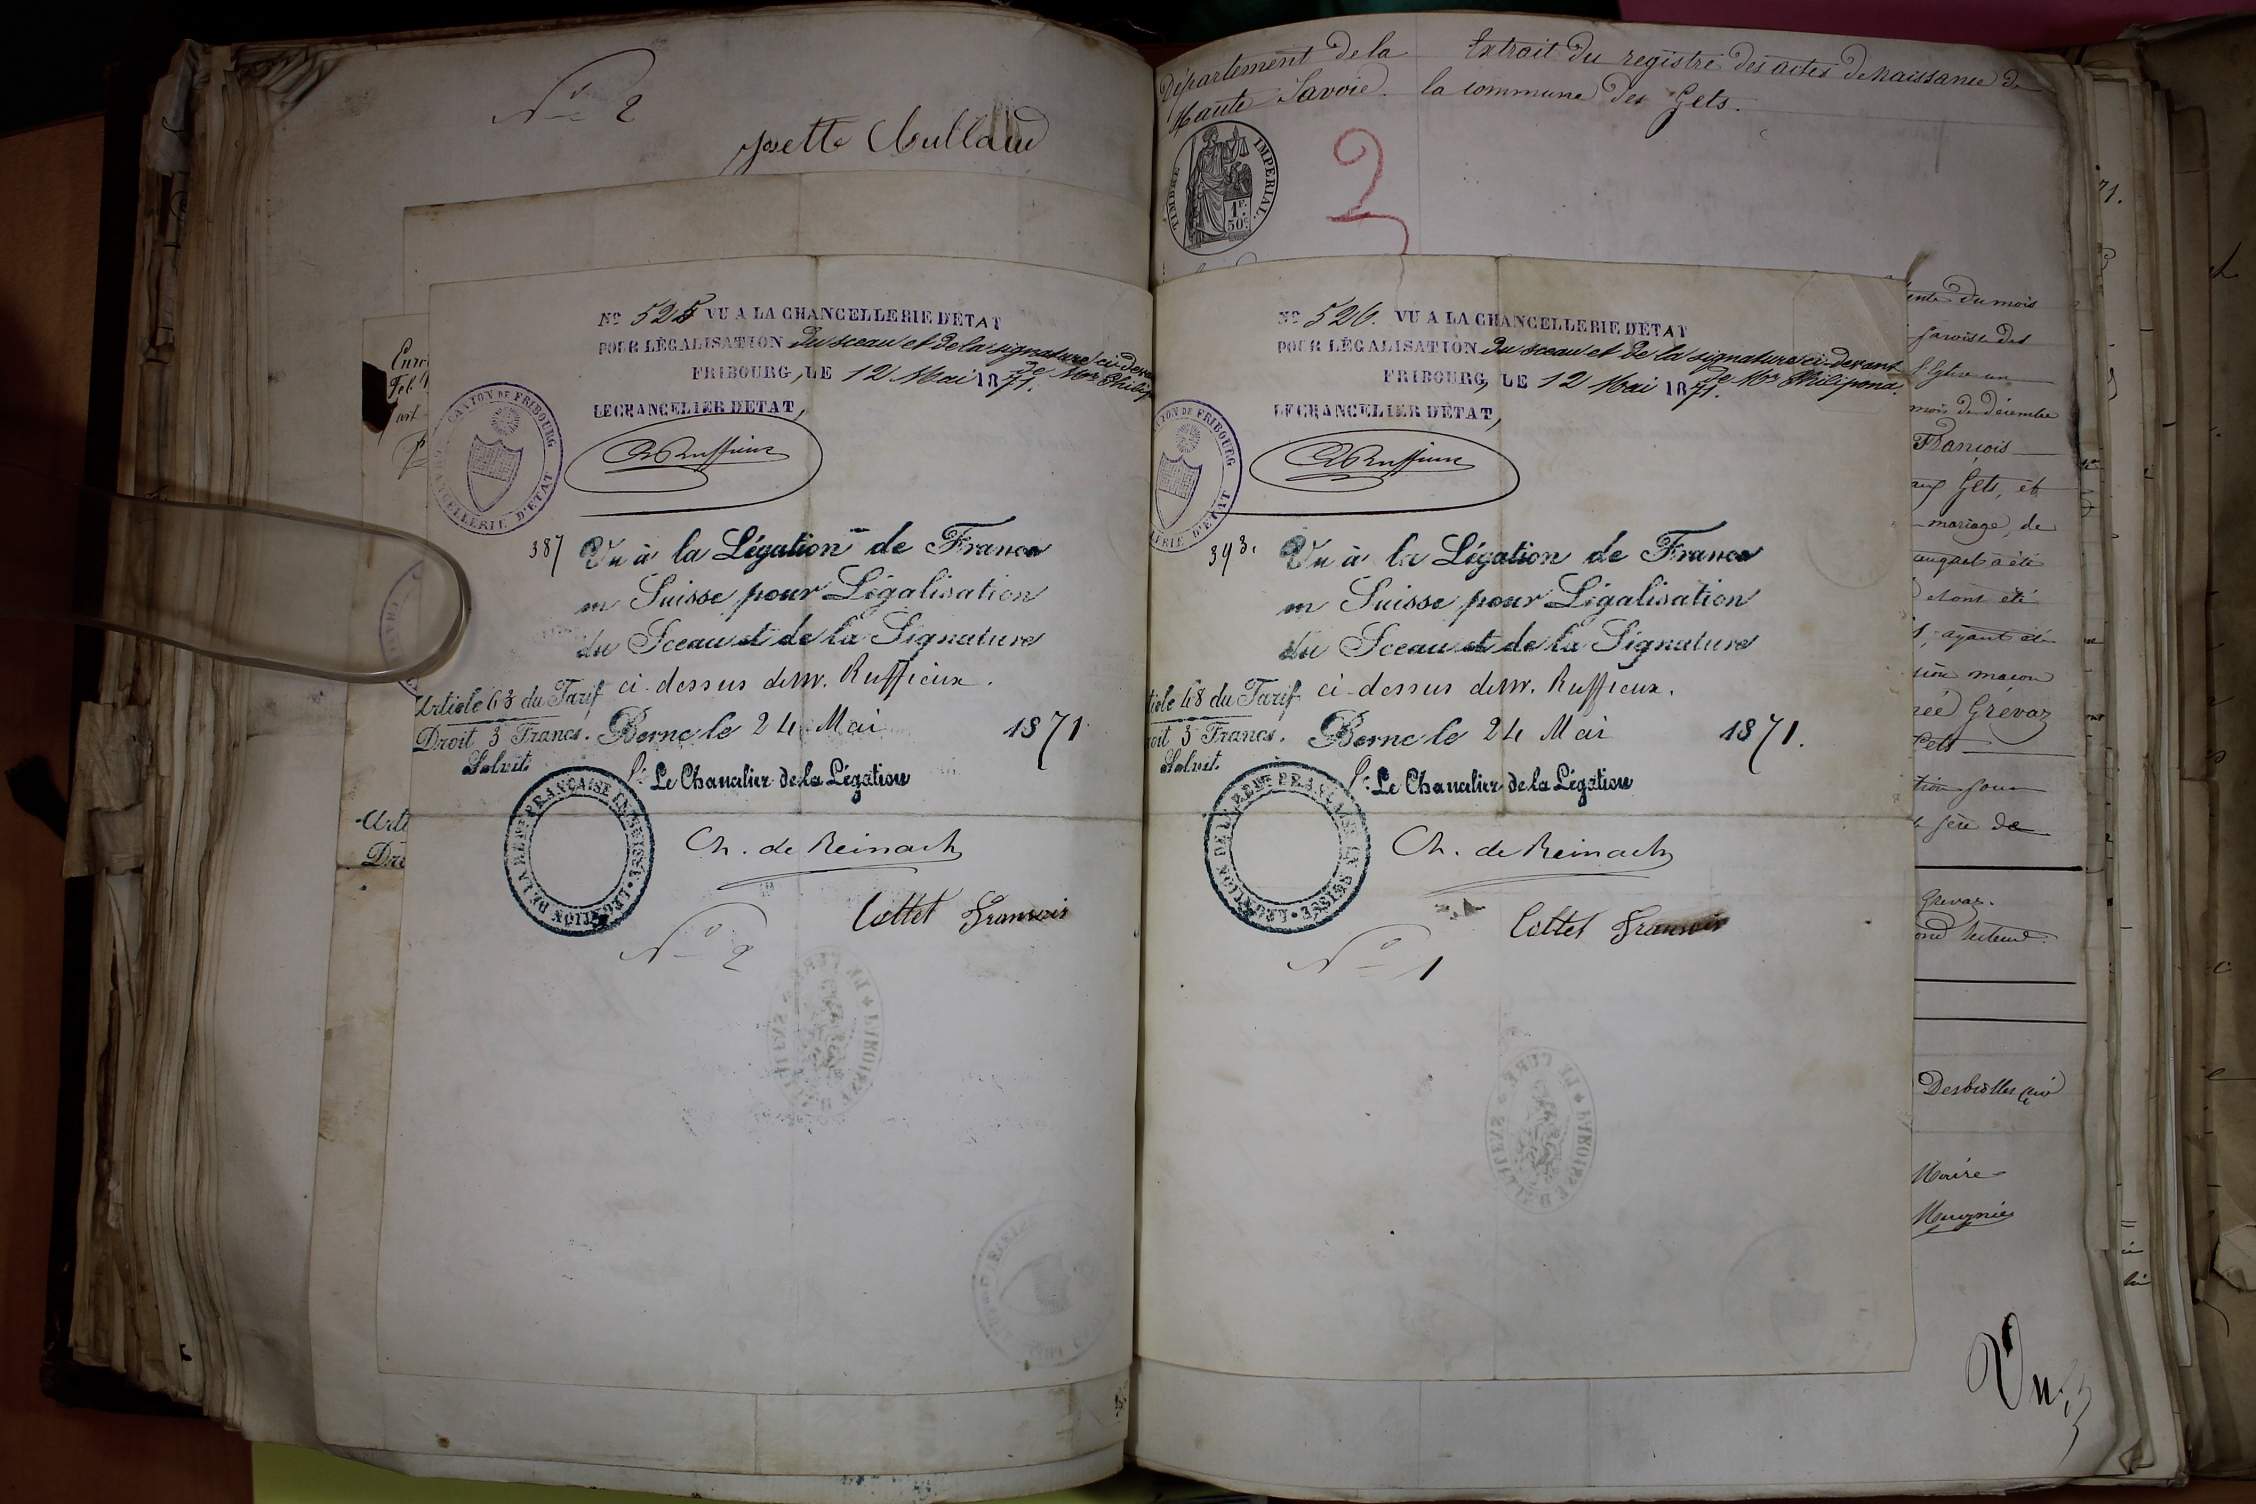 No 2
Département de la
Haute Savoie.
Extrait du registre des actes de naissance de
la commune des Gets.
TIMBRE IMPERIAL.
1F. 50c
2
No 525 VU A LA CHANCELLERIE D'ÉTAT
POUR LÉGALISATION du sceau et de la signature ci-devant
de Mr Philip
FRIBOURG, LE 12 Mai 1871.
LE CHANCELIER D'ETAT,
CANTON DE FRIBOURG
CHANCELLERIE D'ÉTAT
Ruffieux
387 Vu à la Légation de France
en Suisse pour Légalisation
du Sceau et de la Signature
ci-dessus de M. Ruffieux.
Article 68 du Tarif
Droit 3 Francs.
Solvit.
Berne le 24 Mai 1871
Le Chancelier de la Légation
LÉGATION DE LA RÉPE FRANÇAISE EN SUISSE
Ch. de Reinach
Cottet François
No 2
No 526. VU A LA CHANCELLERIE D'ÉTAT
POUR LÉGALISATION du sceau et de la signature ci-devant
de Mr Philipona.
FRIBOURG, LE 12 Mai 1871.
LE CHANCELIER D'ÉTAT,
TON DE FRIBOURG
LERIE D'ÉTAT
Ruffieux
393. Vu à la Légation de France
en Suisse pour Légalisation
du Sceau et de la Signature
ci-dessus de M. Ruffieux.
ticle 68 du Tarif
roit 3 Francs.
Solvit.
Berne le 24 Mai 1871.
Le Chancelier de la Légation
LÉGATION DE LA RÉPE FRANÇAISE EN SUISSE
Ch. de Reinach
Cottet François
No 1
du mois
paroisse des
mois de décembre
François
aux Gets, et
mariage, de
a été
ont été
ayant été
maçon
née Grévaz
Gets
père de
Grevaz.
Maire
Vu